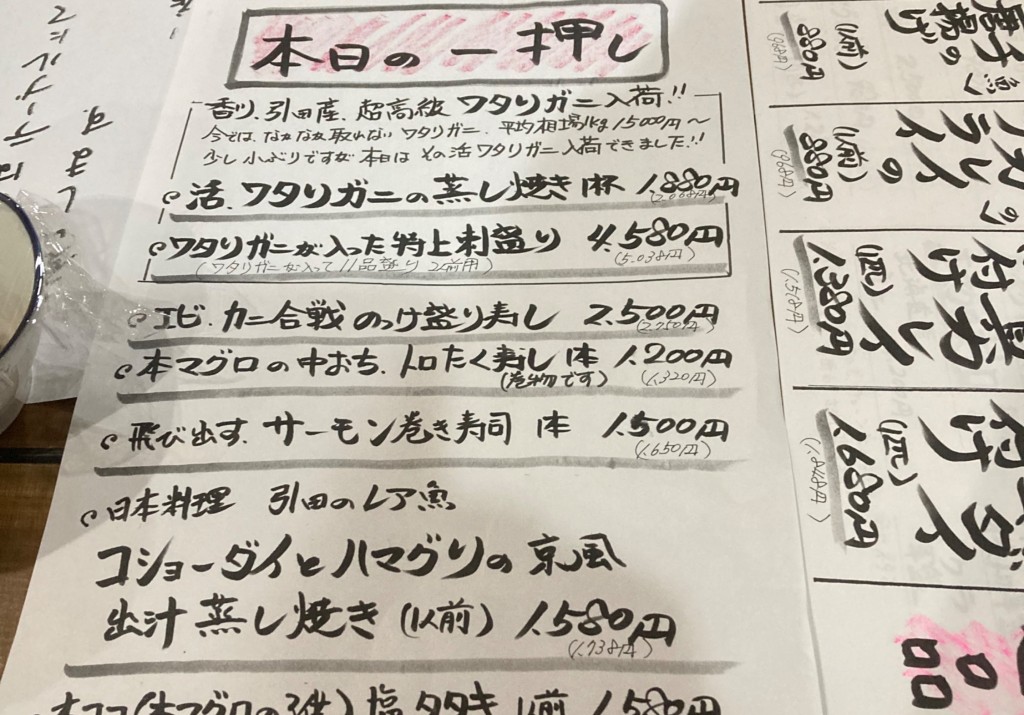 本日の一押し
香川、引田産、超高級 ワタリガニ入荷!!
今では、なかなか取れない ワタリガニ、平均相場1kg 15000円〜
少し小ぶりですが 本日は その活ワタリガニ入荷できました!!
活、ワタリガニの蒸し焼き 1杯 1,880円
ワタリガニが入った特上刺盛り 4,580円
(5,038円)
(ワタリガニが入って11品盛り 2人前用)
エビ、カニ合戦 のっけ盛り寿し 2,500円
(2,750円)
本マグロの中おち、トロたく寿し 1本 1,200円
(巻物です) (1,320円)
飛び出す、サーモン巻き寿司 1本 1,500円
(1,650円)
日本料理 引田のレア魚
コショーダイとハマグリの京風
出汁蒸し焼き (1人前) 1,580円
(1,738円)
塩タタキ 1人前 1,580円
唐揚げ
(1人前)
880円
(968円)
(1人前)
880円
(968円)
付け
(1匹)
1,380円
(1,518円)
付け
(1匹)
1,680円
(1,848円)
品